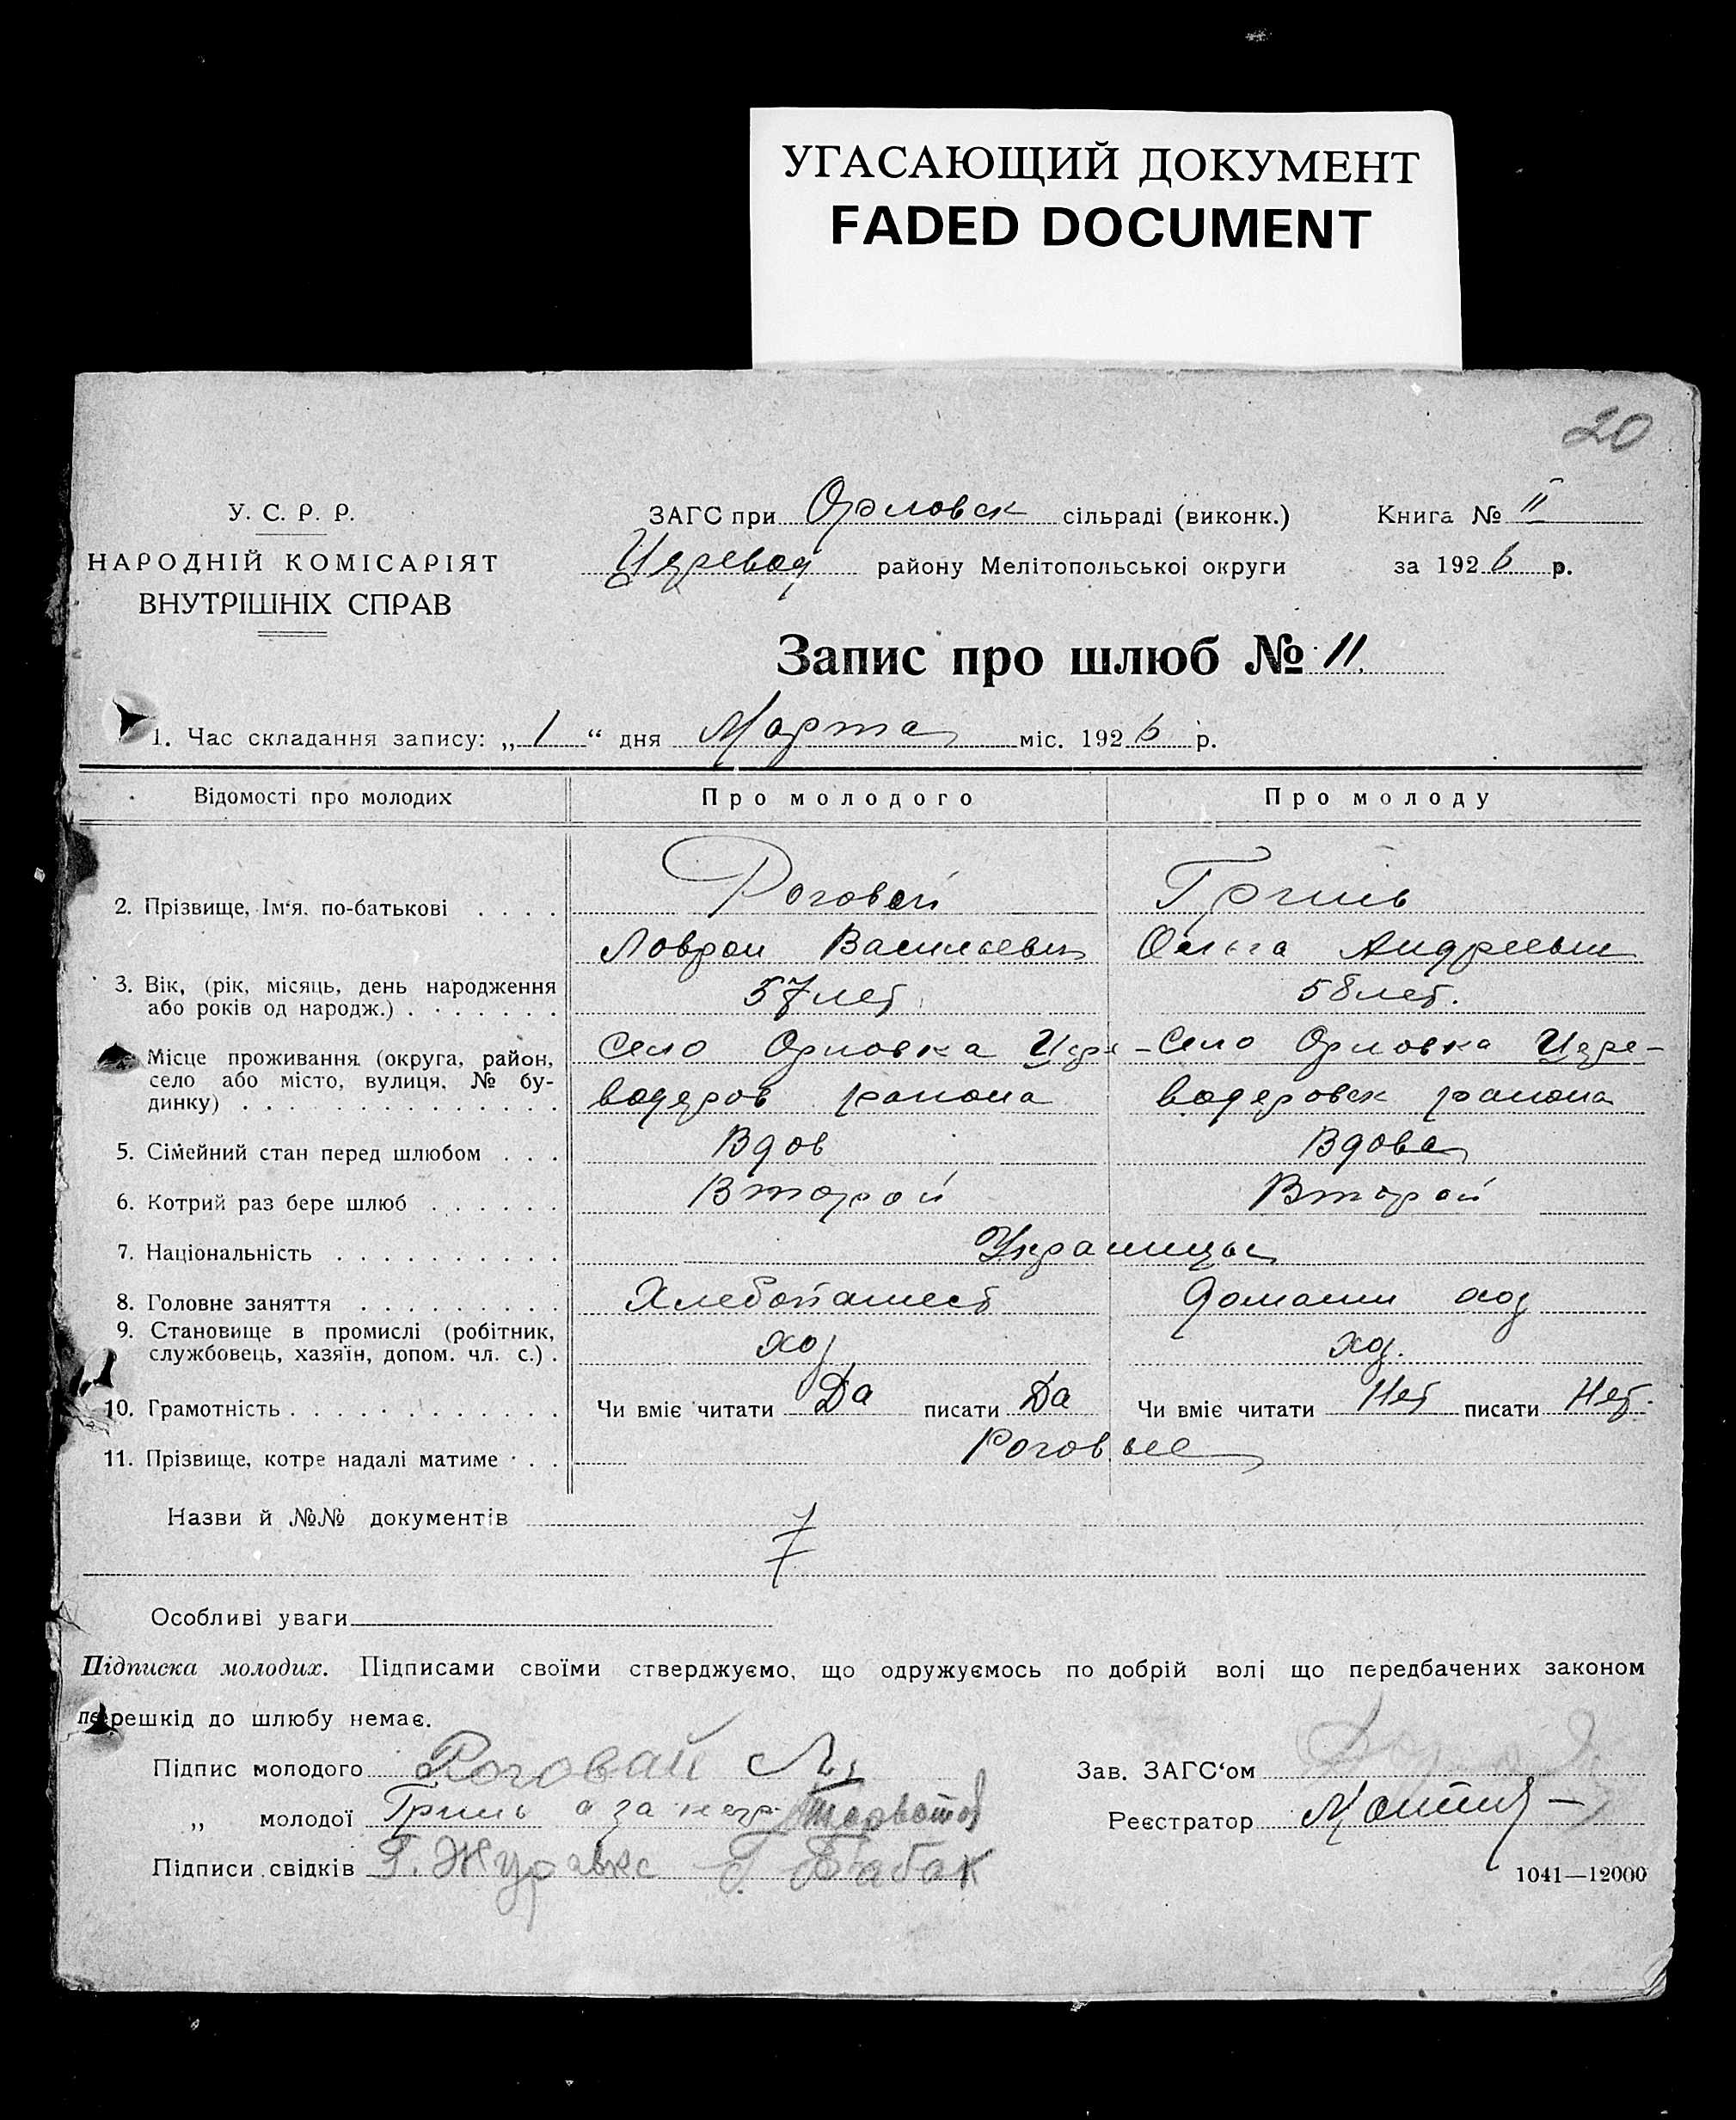 УГАСАЮЩИЙ ДОКУМЕНТ
FADED DOCUMENT
20
У. С. Р. Р.
НАРОДНІЙ КОМІСАРІЯТ
ВНУТРІШНІХ СПРАВ
ЗАГС при Орловск сільраді (виконк.)
Цяревод району Мелітопольської округи
Книга № II
за 1926 р.
Запис про шлюб № 11.
1. Час складання запису: „1“ дня Марта міс. 1926 р.
Відомості про молодих Про молодого Про молоду
2. Прізвище, Ім‘я, по-батькові . . . . Роговой Гриль
Ловрои Васильевич Ольга Андреевн
3. Вік, (рік, місяць, день народження
або років од народж.) . . . . . . . 57 лет 58 лет.
Місце проживання (округа, район,
село або місто, вулиця, № бу-
динку) . . . . . . . . . . . . . .
Село Орловка Цяре- Село Орловка Цяре-
водяров района водяровск района
5. Сімейний стан перед шлюбом . . . Вдов Вдова
6. Котрий раз бере шлюб . . . . . . Второй Второй
7. Національність . . . . . . . . . . Украинцы
8. Головне заняття . . . . . . . . . Хлебопашест Домашн хоз
9. Становище в промислі (робітник,
службовець, хазяїн, допом. чл. с.) . хоз хоз.
10. Грамотність . . . . . . . . . . . . Чи вміє читати Да писати Да Чи вміє читати Нет писати Нет.
11. Прізвище, котре надалі матиме . . . Роговые
Назви й №№ документів
Особливі уваги
Підписка молодих. Підписами своїми стверджуємо, що одружуємось по добрій волі що передбачених законом
перешкід до шлюбу немає.
Підпис молодого Роговай Л.
„ молодої Гриль а за негр
Підписи свідків Г. Журавке Г. Бабак
Зав. ЗАГС‘ом
Реєстратор
1041—12000